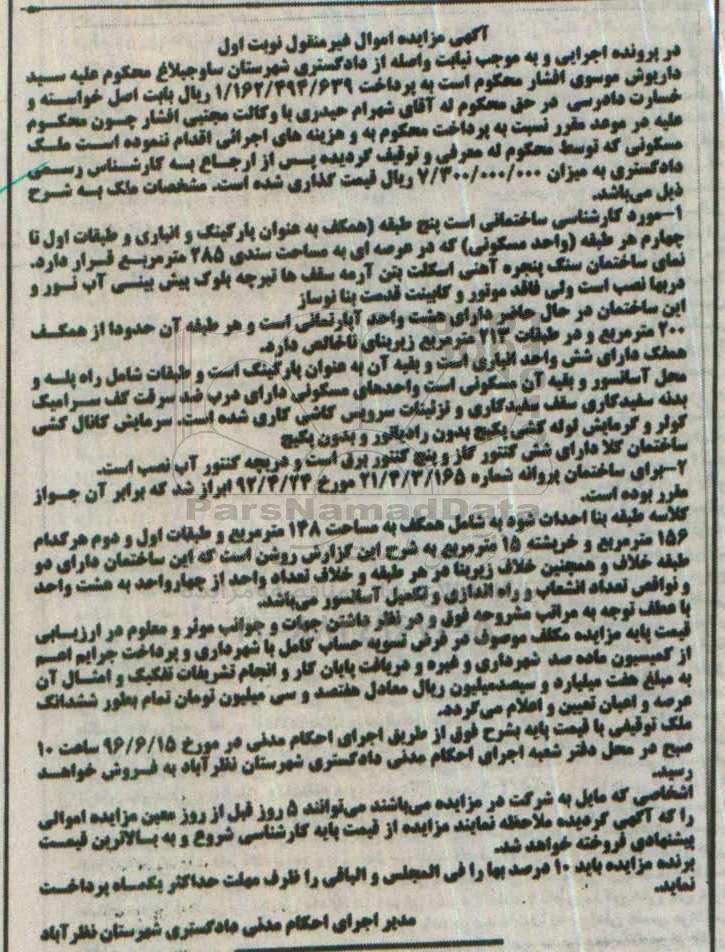 آگهی مزایده اموال غیرمنقول نوبت اول
در پرونده اجرایی و به موجب نیابت واصله از دادگستری شهرستان ساوجبلاغ محکوم علیه سید
داریوش موسوی افشار محکوم است به پرداخت ۱/۱۶۲/۴۹۴/۶۳۹ ریال بابت اصل خواسته و
خسارت دادرسی در حق محکوم له آقای شهرام حیدری با وکالت مجتبی افشار چون محکوم
علیه در موعد مقرر نسبت به پرداخت محکوم به و هزینه های اجرائی اقدام ننموده است ملک
مسکونی که توسط محکوم له معرفی و توقیف گردیده پس از ارجاع به کارشناس رسمی
دادگستری به میزان ۷/۳۰۰/۰۰۰/۰۰۰ ریال قیمت گذاری شده است. مشخصات ملک به شرح
ذیل می‌باشد.
۱-مورد کارشناسی ساختمانی است پنج طبقه (همکف به عنوان پارکینگ و انباری و طبقات اول تا
چهارم هر طبقه (واحد مسکونی) که در عرصه ای به مساحت سندی ۲۸۵ مترمربع قرار دارد.
نمای ساختمان سنگ پنجره آهنی اسکلت بتن آرمه سقف ها تیرچه بلوک پیش بینی آب نور و
دربها نصب است ولی فاقد موتور و کابینت قدمت بنا نوساز
این ساختمان در حال حاضر دارای هشت واحد آپارتمانی است و هر طبقه آن حدودا از همکف
۲۰۰ مترمربع و در طبقات ۲۱۳ مترمربع زیربنای ناخالص دارد.
همکف دارای شش واحد انباری است و بقیه آن به عنوان پارکینگ است و طبقات شامل راه پله و
محل آسانسور و بقیه آن مسکونی است واحدهای مسکونی دارای درب ضد سرقت کف سرامیک
بدنه سفیدکاری سقف سفیدکاری و تزئینات سرویس کاشی کاری شده است. سرمایش کانال کشی
کولر و گرمایش لوله کشی پکیج بدون رادیاتور و بدون پکیج
ساختمان کلا دارای شش کنتور گاز و پنج کنتور برق است و دریچه کنتور آب نصب است.
۲-برای ساختمان پروانه شماره ۲۱/۴/۳/۱۶۵ مورخ ۹۲/۴/۲۴ ابراز شد که برابر آن جواز
مقرر بوده است.
کلاسه طبقه بنا احداث شود به شامل همکف به مساحت ۱۴۸ مترمربع و طبقات اول و دوم هرکدام
۱۵۶ مترمربع و خرپشته ۱۵ مترمربع به شرح این گزارش روشن است که این ساختمان دارای دو
طبقه خلاف و همچنین خلاف زیربنا در هر طبقه و خلاف تعداد واحد از چهارواحد به هشت واحد
و نواقص تعداد انشعاب و راه اندازی و تکمیل آسانسور می‌باشد.
با عطف توجه به مراتب مشروحه فوق و در نظر داشتن جهات و جوانب موثر و معلوم در ارزیابی
قیمت پایه مزایده مکلف موصوف در فرض تسویه حساب کامل با شهرداری و پرداخت جرایم اعم
از کمیسیون ماده صد شهرداری و غیره و دریافت پایان کار و انجام تشریفات تفکیک و امثال آن
به مبلغ هفت میلیارد و سیصدمیلیون ریال معادل هفتصد و سی میلیون تومان تمام بطور ششدانگ
عرصه و اعیان تعیین و اعلام می‌گردد.
ملک توقیفی با قیمت پایه بشرح فوق از طریق اجرای احکام مدنی در مورخ ۹۶/۶/۱۵ ساعت ۱۰
صبح در محل دفتر شعبه اجرای احکام مدنی دادگستری شهرستان نظرآباد به فروش خواهد
رسید.
اشخاصی که مایل به شرکت در مزایده می‌باشند می‌توانند ۵ روز قبل از روز معین مزایده اموالی
را که آگهی گردیده ملاحظه نمایند مزایده از قیمت پایه کارشناسی شروع و به بالاترین قیمت
پیشنهادی فروخته خواهد شد.
برنده مزایده باید ۱۰ درصد بها را فی المجلس و الباقی را ظرف مهلت حداکثر یکماه پرداخت
نماید.
مدیر اجرای احکام مدنی دادگستری شهرستان نظرآباد
ParsNamadData